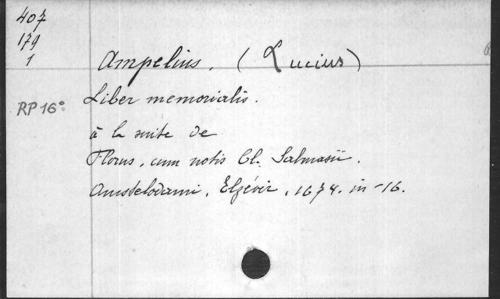 407
179
1
Ampelius. (Lucius)
RP 16°
Liber memorialis.
à la suite de
Florus, cum notis Cl. Salmasii.
Amstelodami, Elzévir, 1674. in-16.